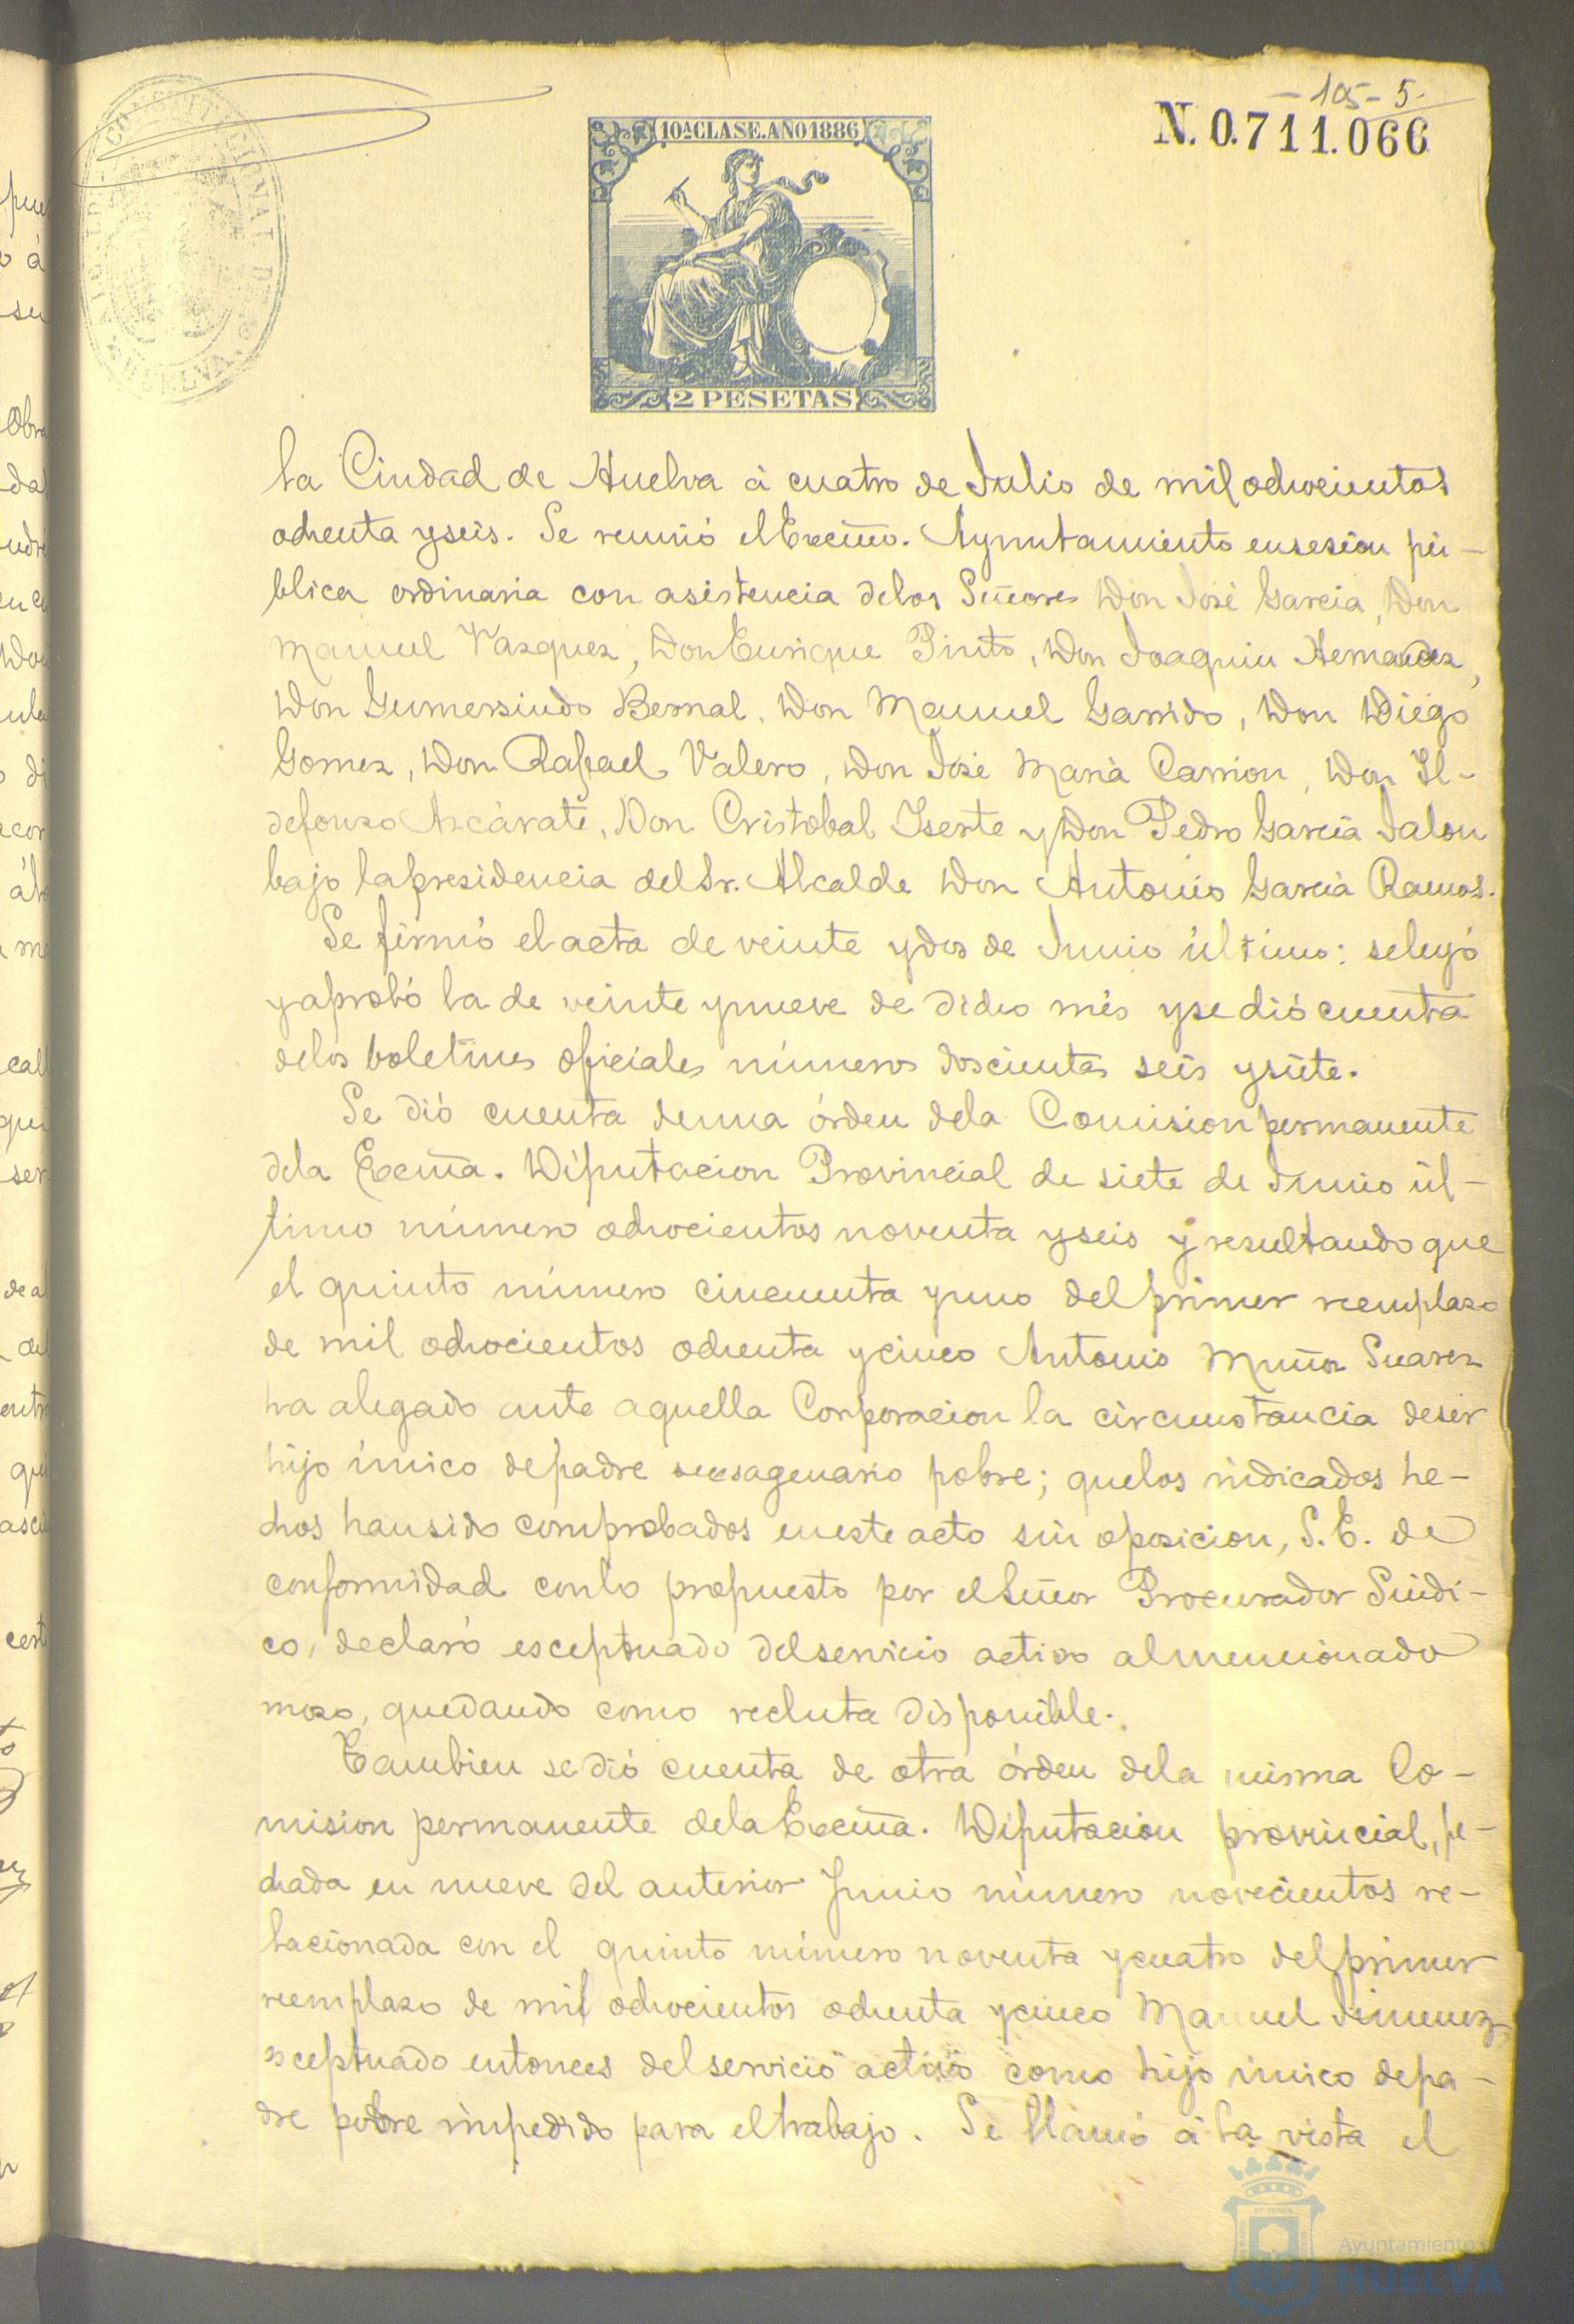 -105-5-
N. 0.711.066
10ª CLASE. AÑO 1886
CONSTITUCIONAL DE
HUELVA
2 PESETAS
la Ciudad de Huelva á cuatro de Julio de mil ochocientos
ochenta y seis. Se reunió el Excmo. Ayuntamiento en sesion pú-
blica ordinaria con asistencia de los Señores Don José Garcia, Don
Manuel Vazquez, Don Enrique Pinto, Don Joaquin Hernandez,
Don Gumersindo Bernal, Don Manuel Garrido, Don Diego
Gomez, Don Rafael Valero, Don José Maria Carrion, Don Il-
defonso Azcárate, Don Cristobal Iserte y Don Pedro Garcia Jalon
bajo la presidencia del Sr. Alcalde Don Antonio Garcia Ramos.
Se firmó el acta de veinte y dos de Junio último: se leyó
y aprobó la de veinte y nueve de dicho mes y se dió cuenta
de los boletines oficiales números doscientos seis y siete.
Se dió cuenta de una órden de la Comision permanente
de la Excma. Diputacion Provincial de siete de Junio úl-
timo número ochocientos noventa y seis y resultando que
el quinto número cincuenta y uno del primer reemplazo
de mil ochocientos ochenta y cinco Antonio Muñoz Suarez
ha alegado ante aquella Corporacion la circunstancia de ser
hijo único de padre sexsagenario pobre; que los indicados he-
chos han sido comprobados en este acto sin oposicion, S. E. de
conformidad con lo propuesto por el Señor Procurador Sindi-
co, declaró esceptuado del servicio activo al mencionado
mozo, quedando como recluta disponible.
Tambien se dió cuenta de otra órden de la misma Co-
mision permanente de la Excma. Diputacion provincial, fe-
chada en nueve del anterior Junio número novecientos re-
lacionada con el quinto número noventa y cuatro del primer
reemplazo de mil ochocientos ochenta y cinco Manuel Jimenez,
esceptuado entonces del servicio activo como hijo único de pa-
dre pobre impedido para el trabajo. Se llamó á la vista el
Ayuntamiento
HUELVA